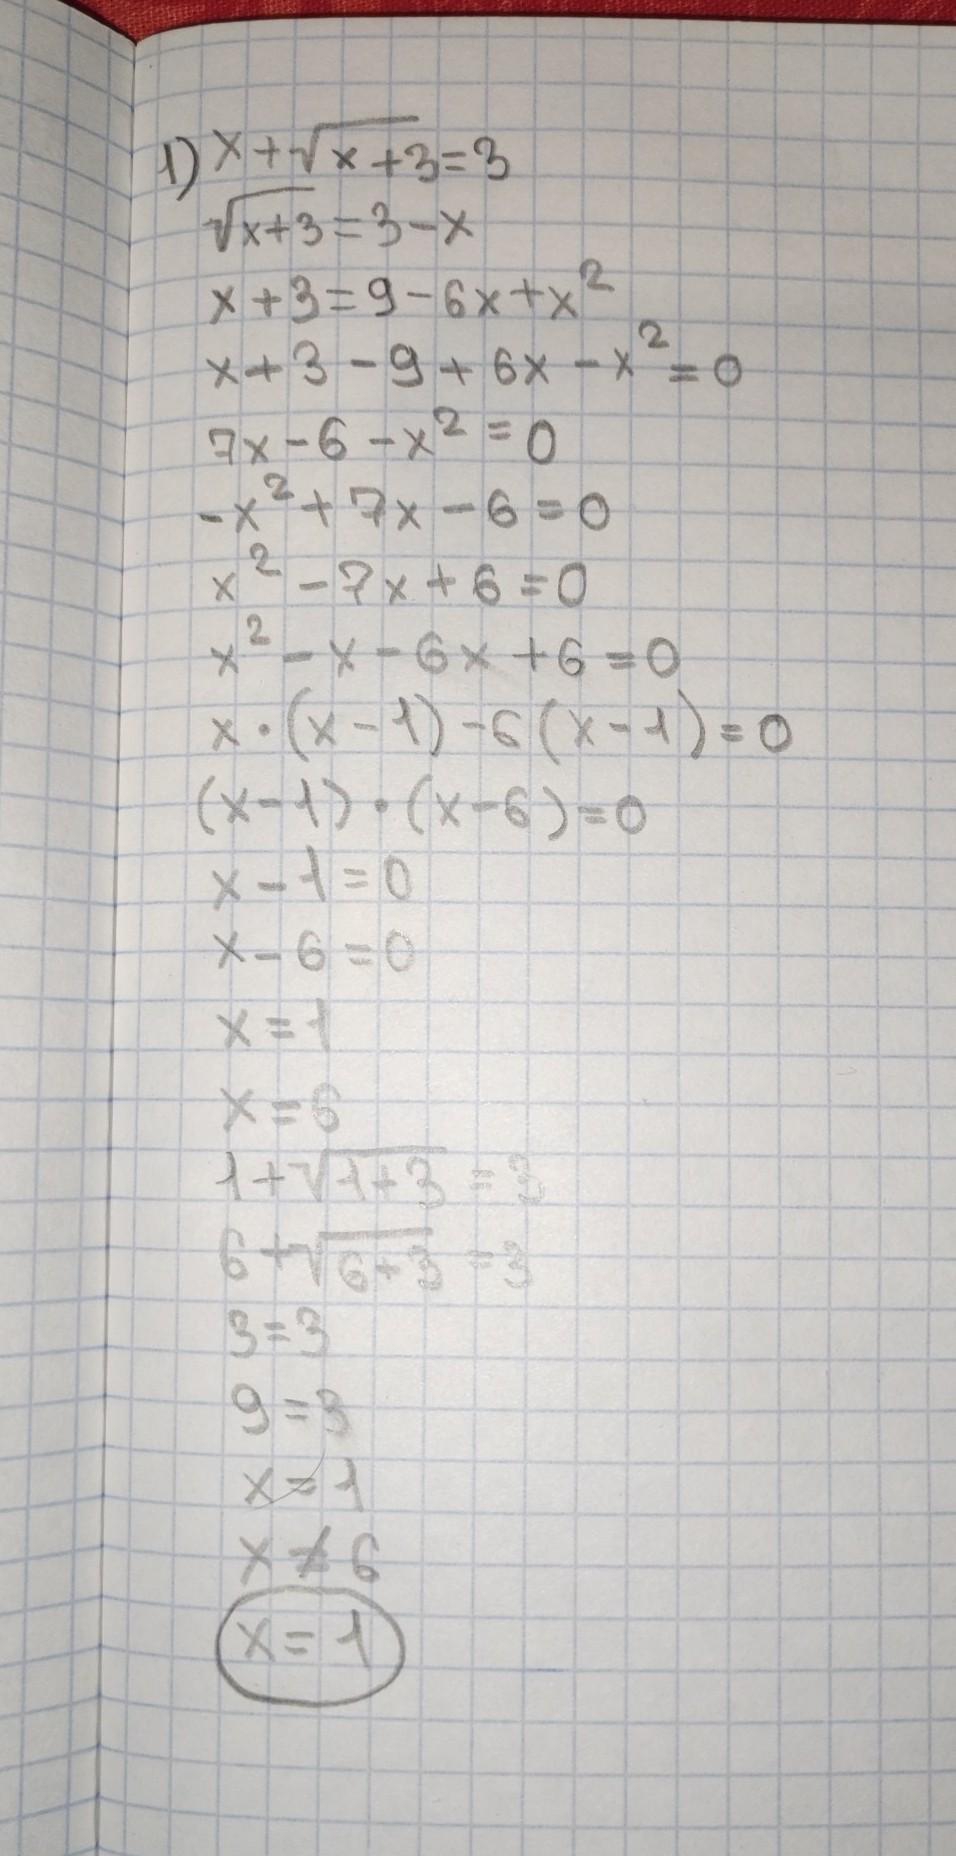 1) x+√x+3=3
√x+3=3-x
x+3=9-6x+x²
x+3-9+6x-x²=0
7x-6-x²=0
-x²+7x-6=0
x²-7x+6=0
x²-x-6x+6=0
x·(x-1)-6(x-1)=0
(x-1)·(x-6)=0
x-1=0
x-6=0
x=1
x=6
1+√1+3=3
6+√6+3=3
3=3
9=3
x=1
x≠6
x=1